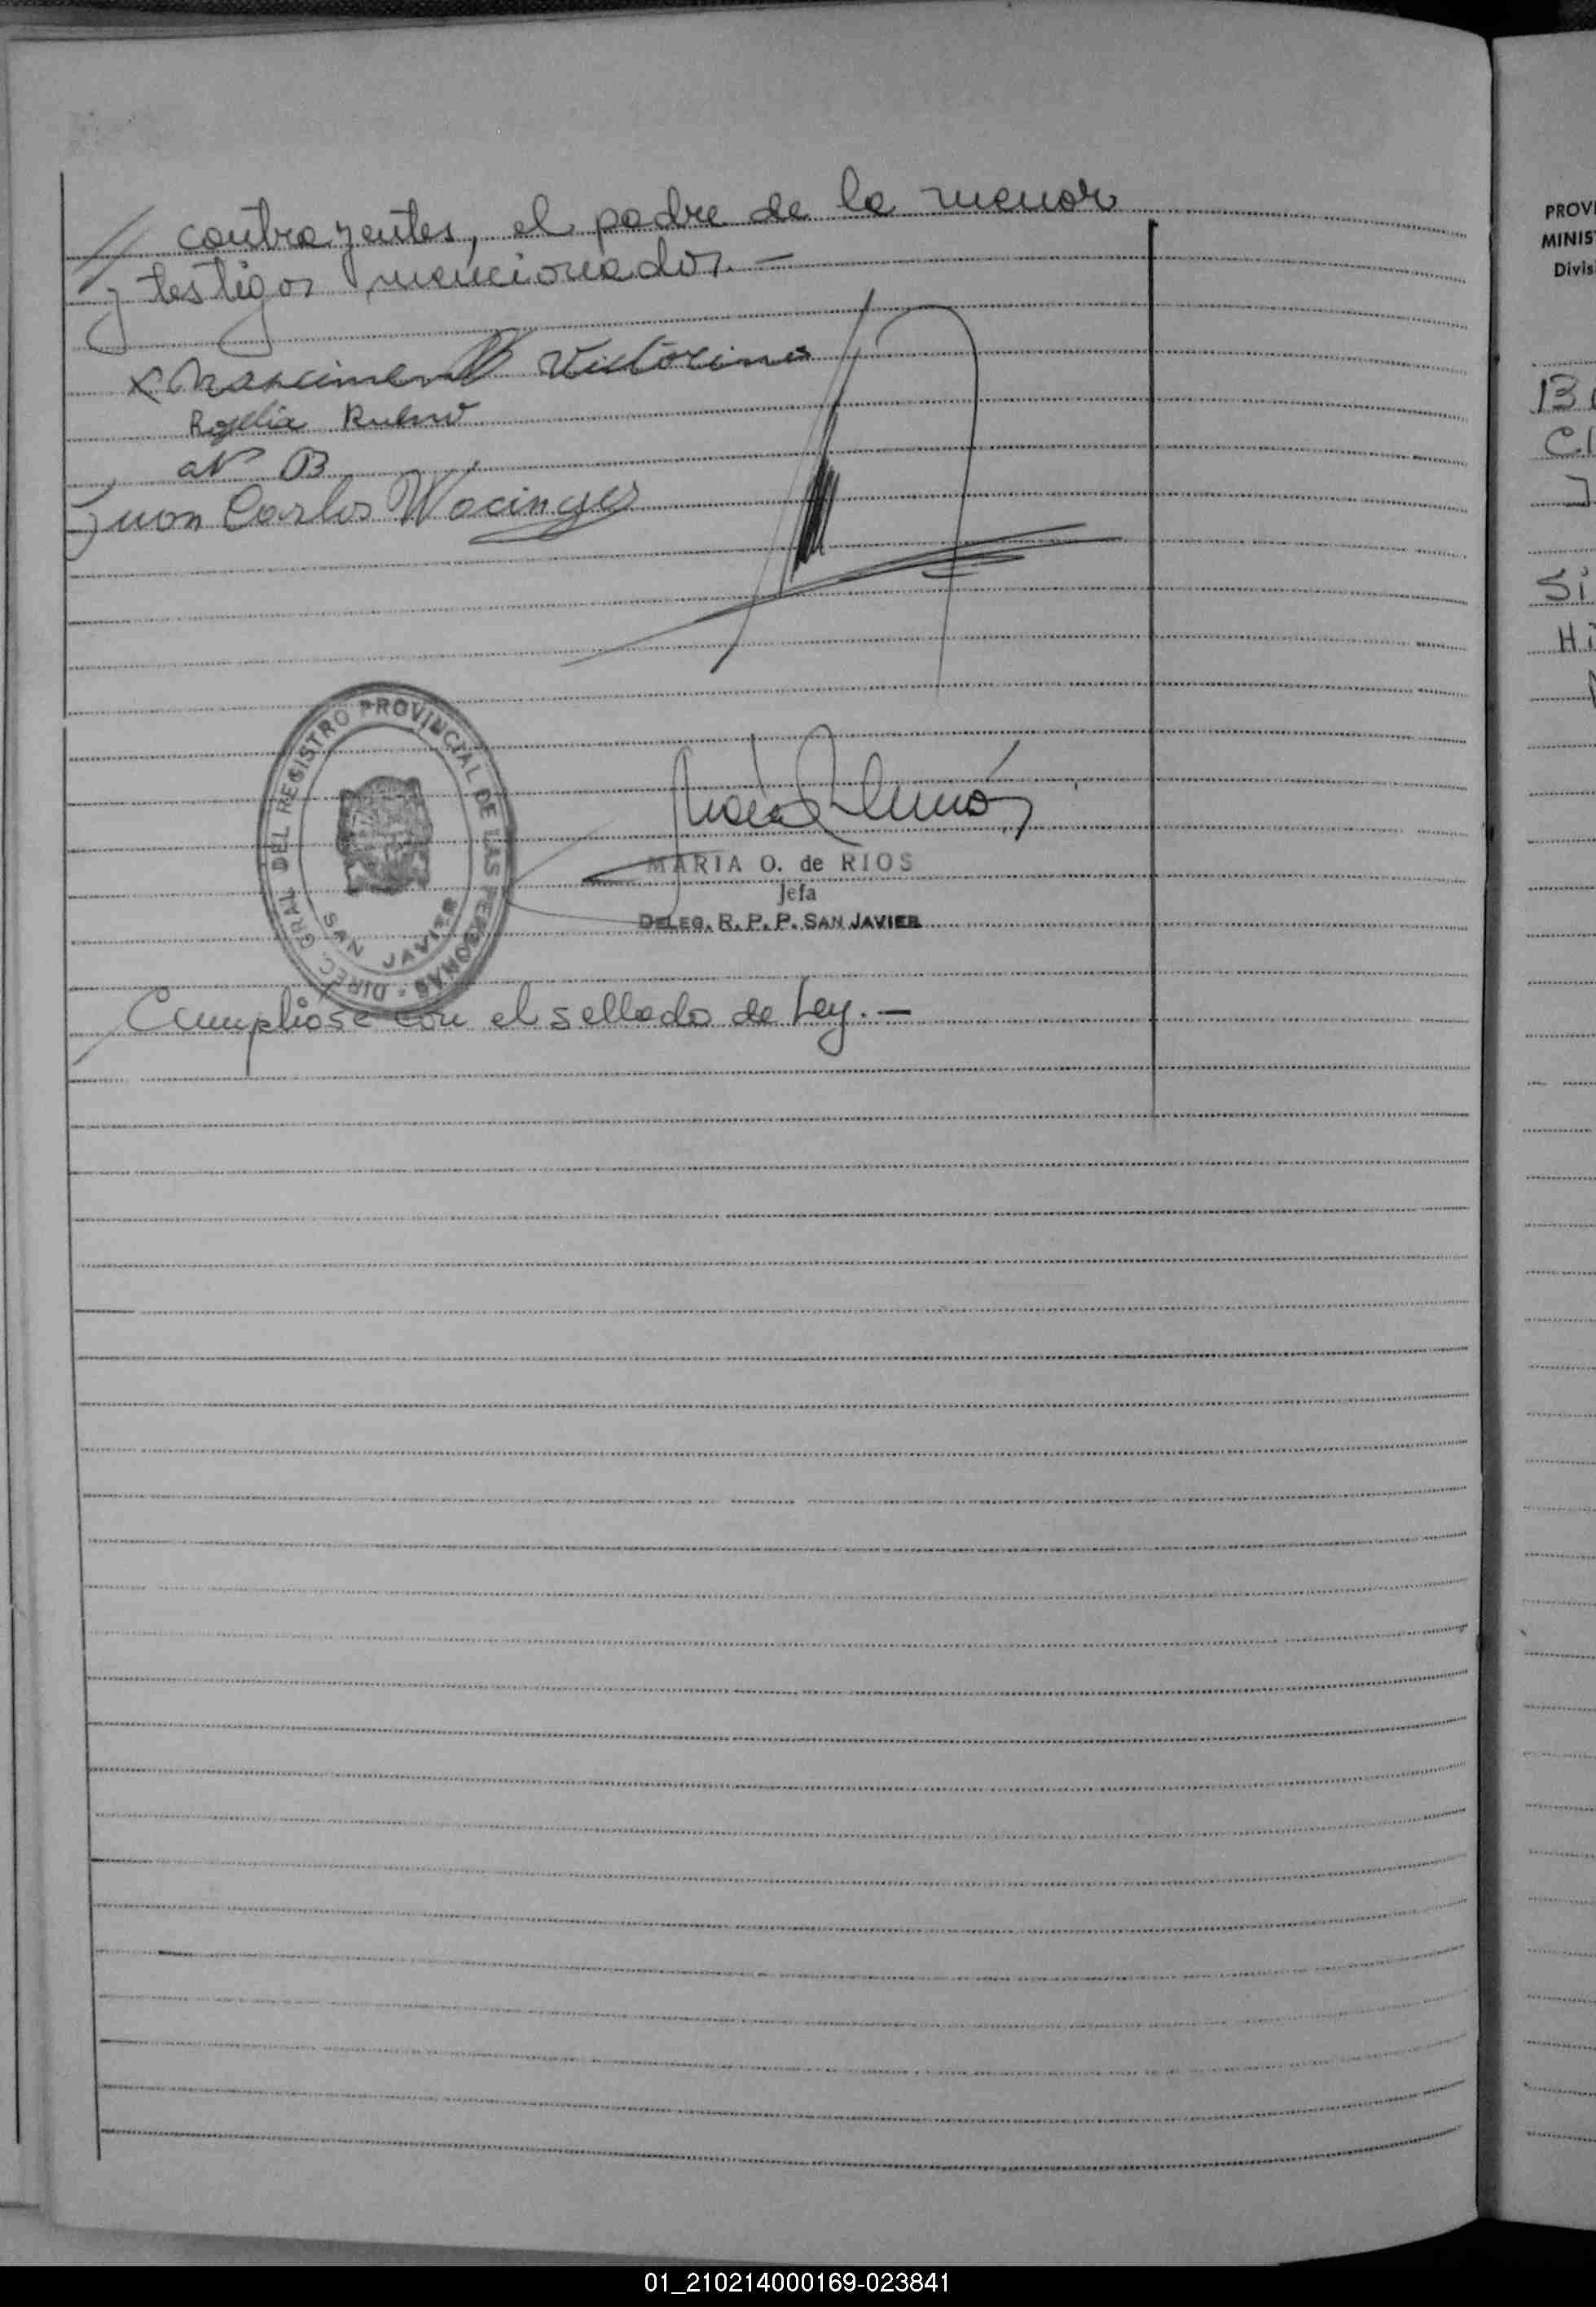 // contrayentes, el padre de la menor
y testigos mencionados.-
x Nascimento Victorino
Rogelia
Juan Carlos Wocinger
DIREC. GRAL. DEL REGISTRO PROVINCIAL DE LAS PERSONAS
SAN JAVIER
MARIA O. de RIOS
Jefa
DELEG. R. P. P. SAN JAVIER
Cumpliose con el sellado de Ley.-
PROVI
MINIS
Divis
13
Si
Hi
01_210214000169-023841